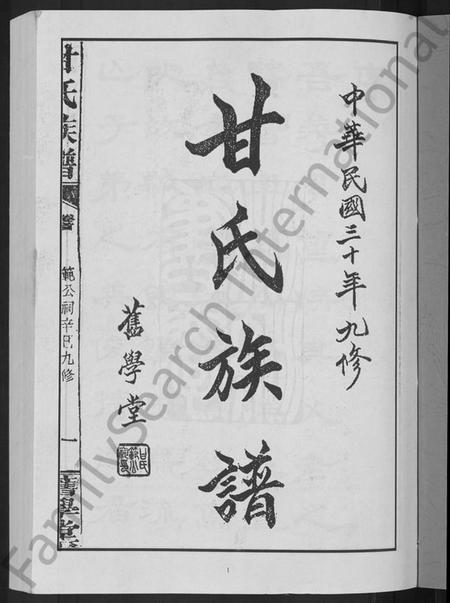 中華民國三十年九修
甘氏族譜
舊學堂
甘氏族譜
範公祠辛巳九修
一
舊學堂
1
FamilySearch International